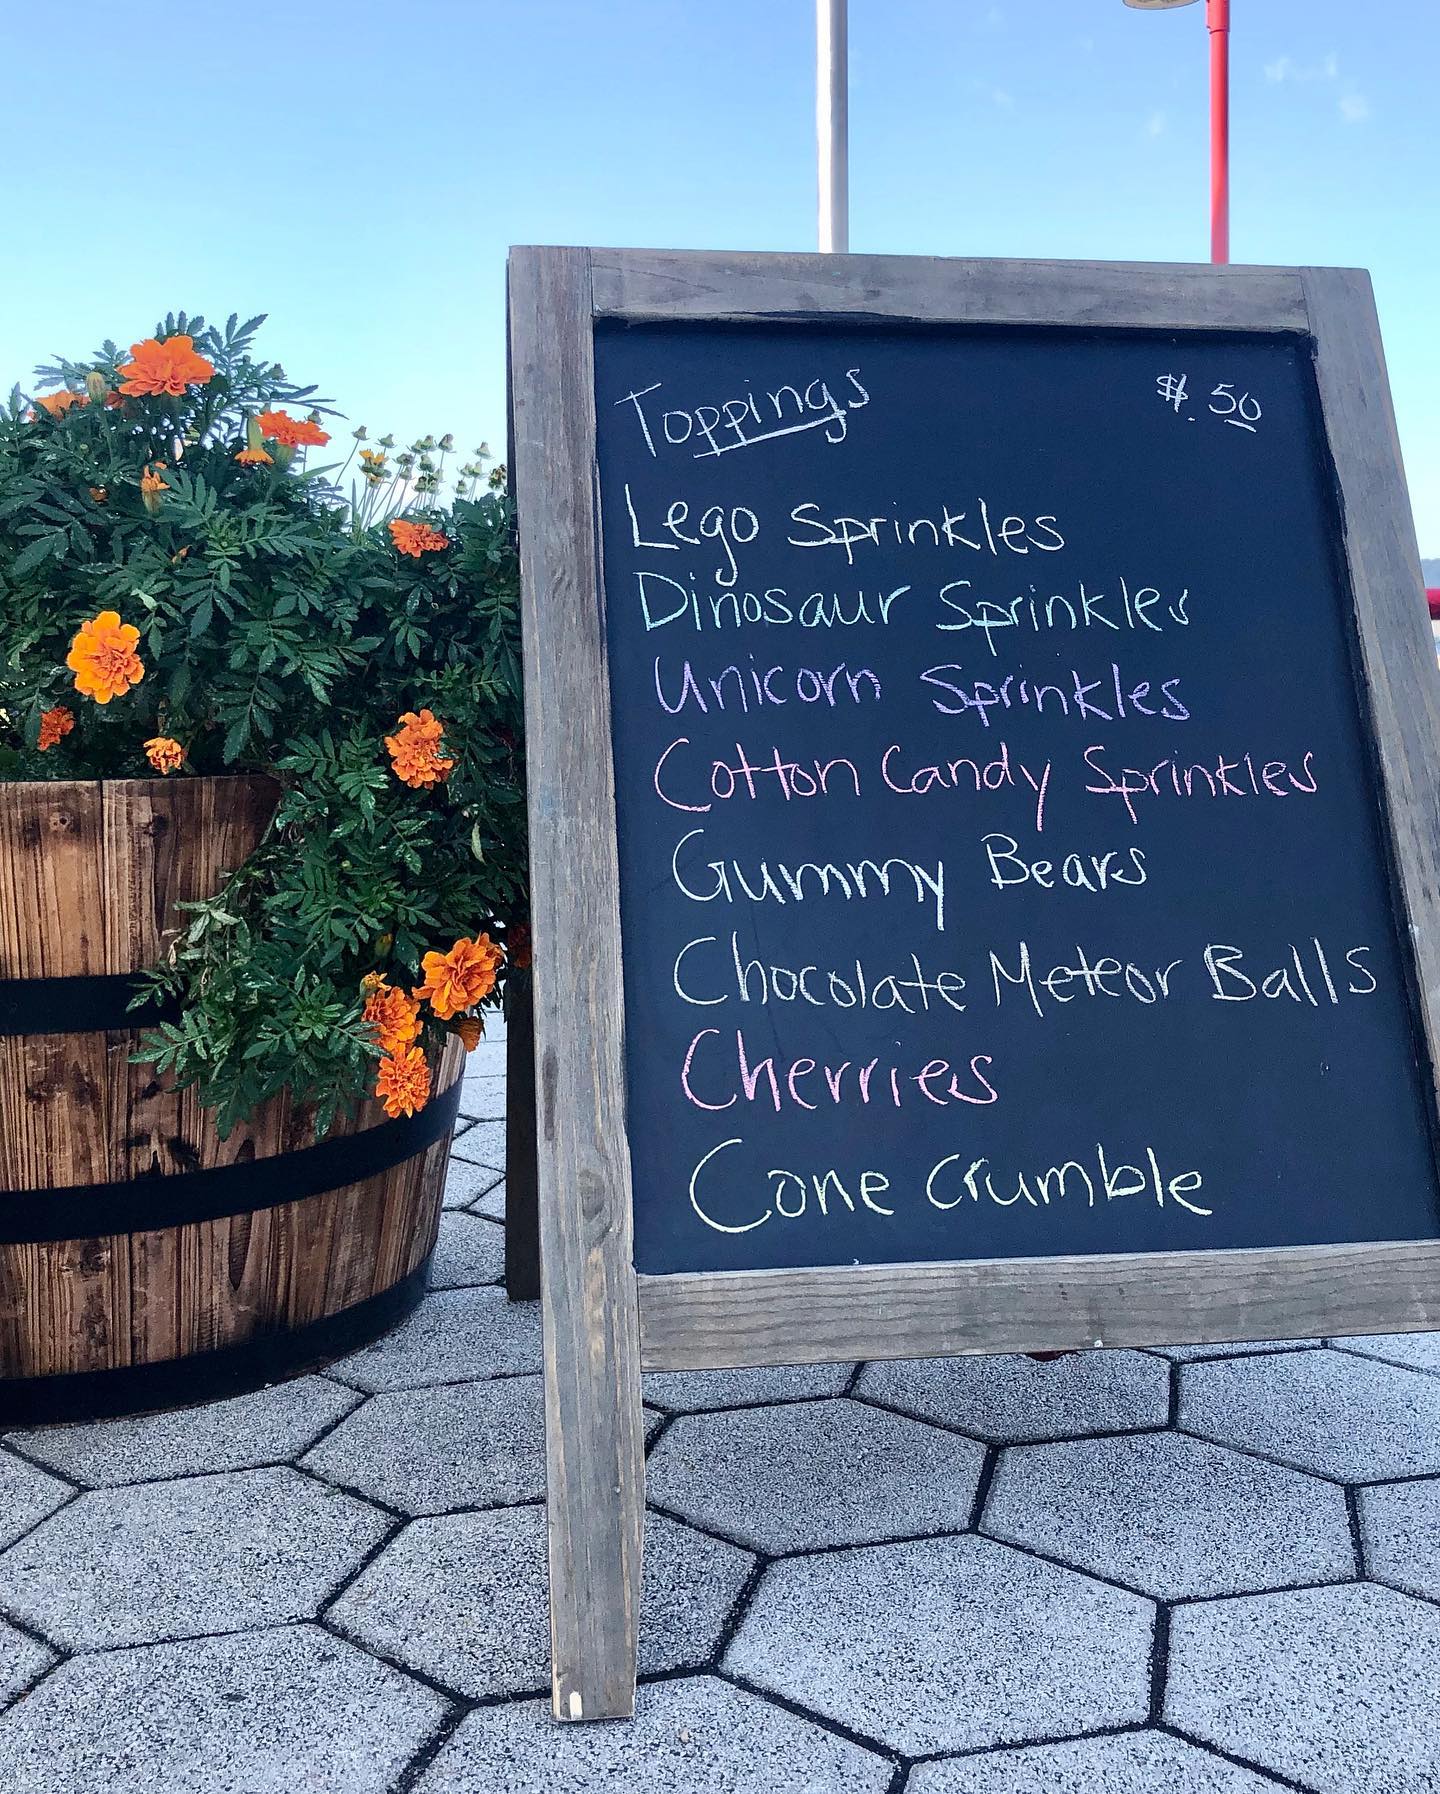 Toppings $.50
Lego Sprinkles
Dinosaur Sprinkles
Unicorn Sprinkles
Cotton Candy Sprinkles
Gummy Bears
Chocolate Meteor Balls
Cherries
Cone crumble